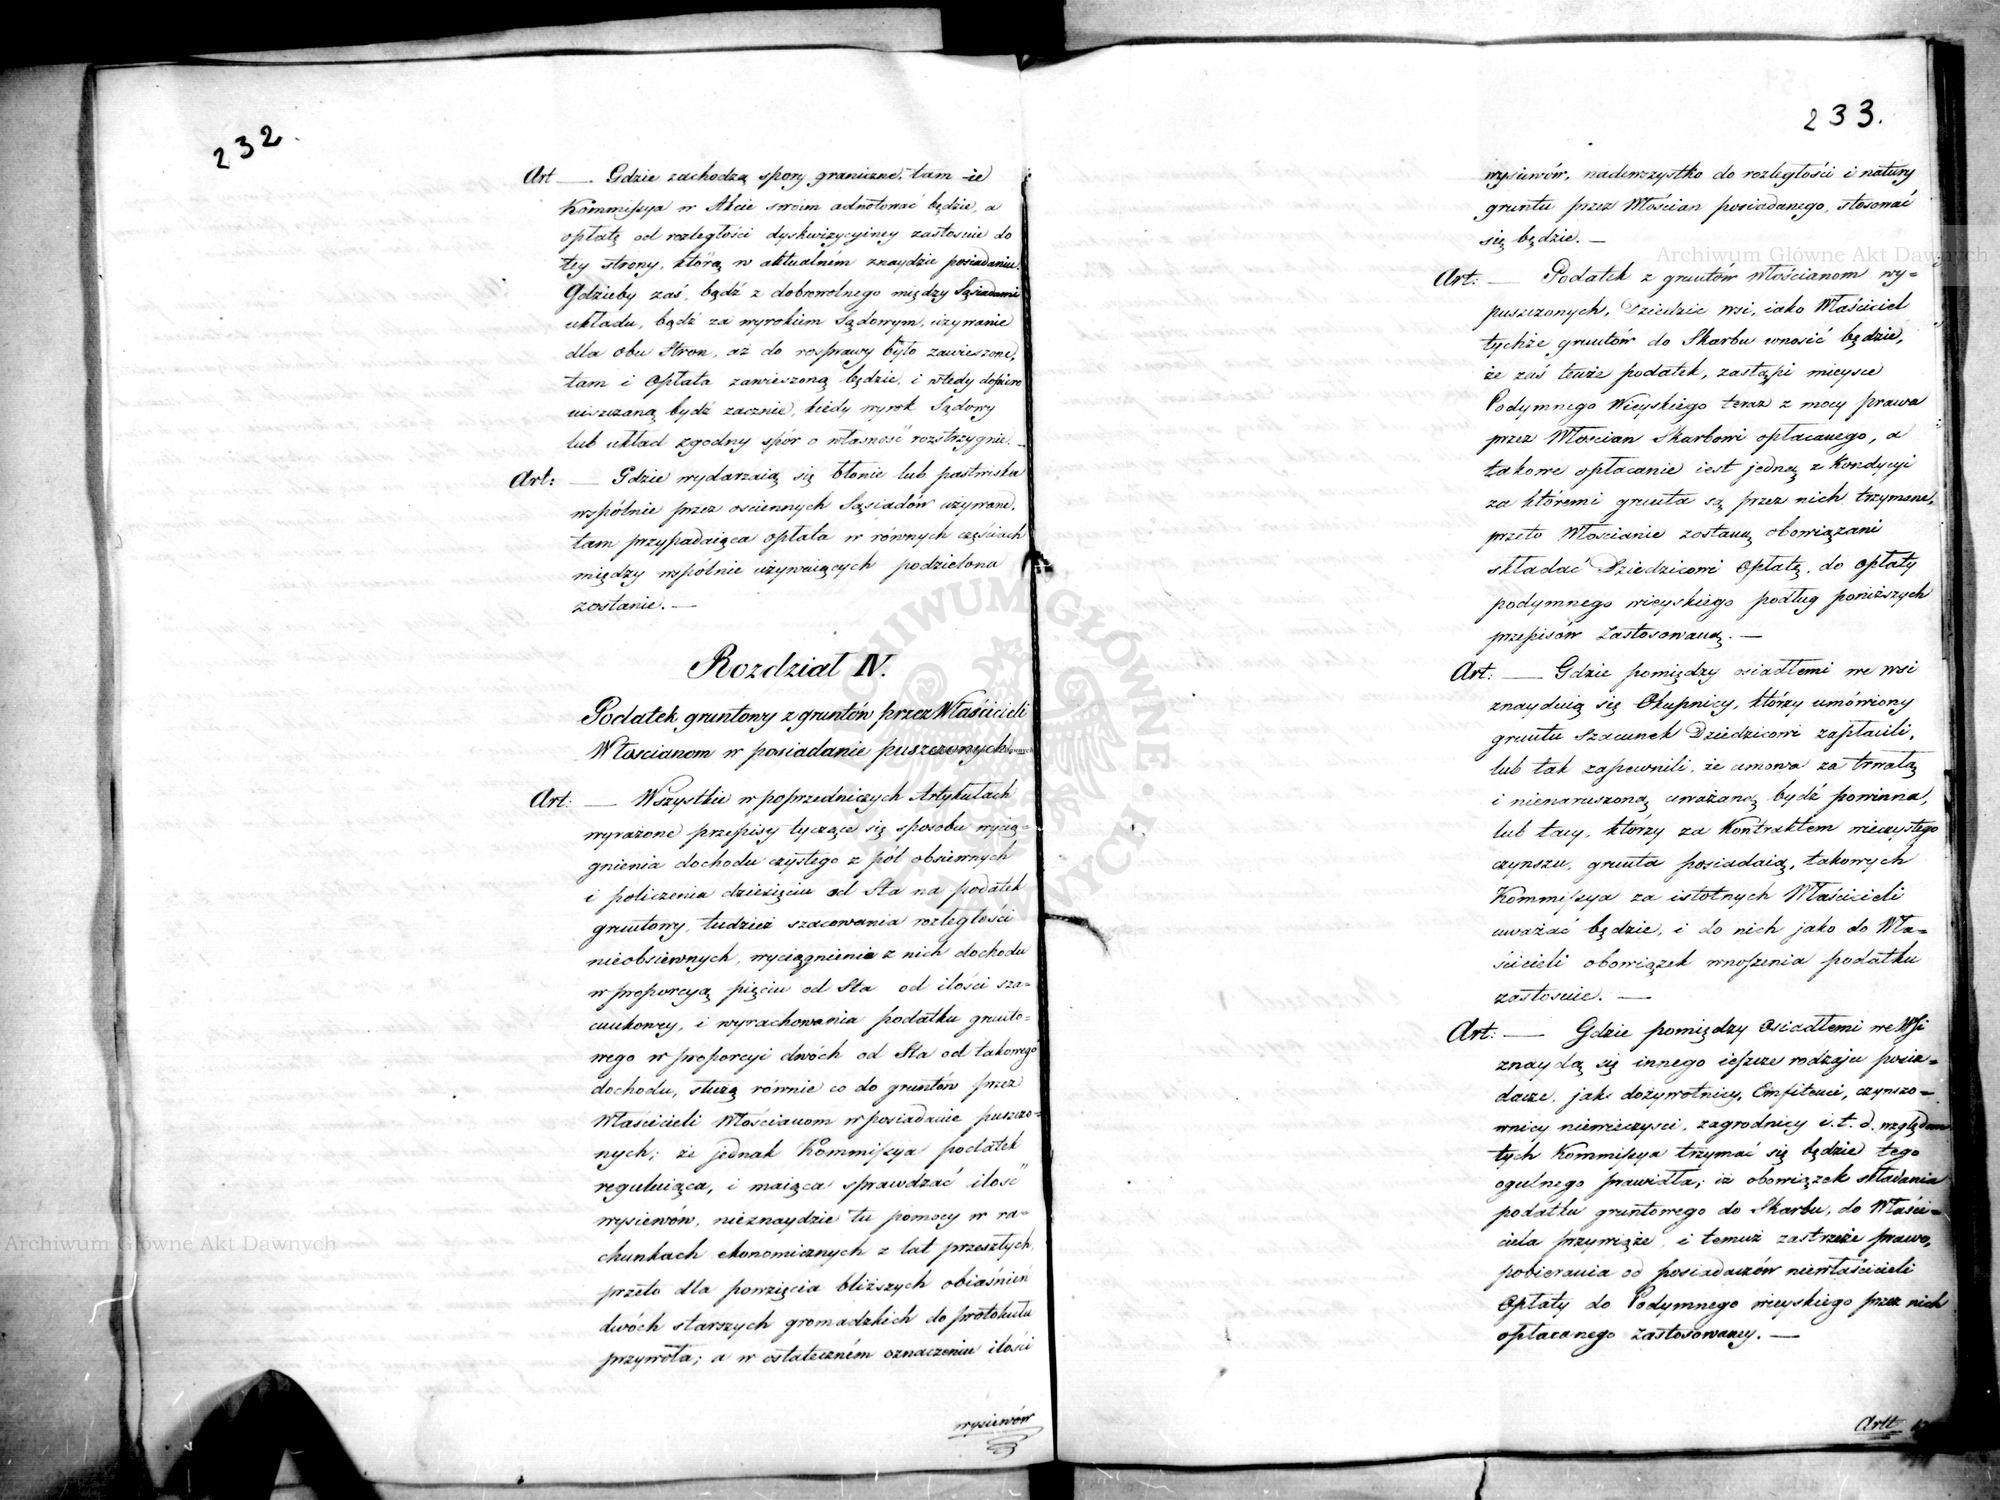 232.
Art — Gdzie zachodzą spory graniczne, tam ie
Kommissya w Akcie swoim adnotować będzie, a
opłatę od rozległości dyskwizycyiney zastosuie do
tey strony, którą w aktualném znaydzie posiadaniu.
Gdzieby zaś, bądź z dobrowolnego między Sąsiadami
układu, bądź za wyrokiem Sądowym, używanie
dla obu Stron, aż do rosprawy było zawieszone,
tam i Opłata zawieszoną będzie, i wtedy dopiero
uiszczaną bydź zacznie, kiedy wyrok Sądowy
lub układ zgodny spór o własność rozstrzygnie. —
Art: — Gdzie wydarzaią się błonie lub pastwiska
wspólnie przez ościennych Sąsiadów używane,
tam przypadaiąca opłata w równych częściach
między wspólnie używaiących podzielona
zostanie. —
Rozdział IV.
Podatek gruntowy z gruntów przez Właścicieli
Włościanom w posiadanie puszczonych
Art: — Wszystkie w poprzedniczych Artykułach
wyrażone przepisy tyczące się sposobu wycią=
gnienia dochodu czystego z pól obsiewnych
i policzenia dziesięciu od Sta na podatek
gruntowy, tudzież szacowania rozległości
nieobsiewnych, wyciągnienia z nich dochodu
w proporcyą pięciu od Sta od ilości sza=
cunkowey, i wyrachowania podatku grunto=
wego w proporcyi dwóch od Sta od takowego
dochodu, służą równie co do gruntów przez
Właścicieli Włościanom w posiadanie puszczo=
nych; że jednak Kommissya podatek
reguluiąca, i maiąca sprawdzać ilość
wysiewów, nieznaydzie tu pomocy w ra=
chunkach ekonomicznych z lat przeszłych,
przeto dla powzięcia bliższych obiaśnień
dwóch starszych gromadzkich do protokułu
przywoła; a w ostateczném oznaczeniu ilości
wysiewów
233.
wysiewów, nadewszystko do rozległości i natury
gruntu przez Włościan posiadanego, stosować
się będzie. —
Art: — Podatek z gruntów Włościanom wy=
puszczonych, Dziedzic wsi, iako Właściciel
tychże gruntów do Skarbu wnosić będzie,
że zaś tenże podatek, zastąpi mieysce
Podymnego Wieyskiego teraz z mocy prawa
przez Włościan Skarbowi opłacanego, a
takowe opłacanie iest jedną z Kondycyi
za któremi grunta są przez nich trzymane,
przeto Włościanie zostaną obowiązani
składać Dziedzicowi Opłatę, do Opłaty
podymnego wieyskiego podług poniższych
przepisów Zastosowaną. —
Art: — Gdzie pomiędzy osiadłemi we wsi
znayduią się Okupnicy, którzy umówiony
gruntu szacunek Dziedzicowi zapłacili,
lub tak zapewnili, że umowa za trwałą
i nienaruszoną uważaną bydź powinna,
lub tacy, którzy za Kontraktem wieczystego
czynszu, grunta posiadaią, takowych
Kommissya za istotnych Właścicieli
uważać będzie, i do nich jako do Wła=
ścicieli obowiązek wnoszenia podatku
zastosuie. —
Art: — Gdzie pomiędzy Osiadłemi we Wsi
znaydą się innego ieszcze rodzaju posia=
dacze, jak: dożywotnicy, Emfiteuci, czynszo=
wnicy niewieczyści, zagrodnicy i. t. d. względem
tych Kommissya trzymać się będzie tego
ogulnego prawidła; iż obowiązek składania
podatku gruntowego do Skarbu, do Właści=
ciela przywiąże, i temuż zastrzeże prawo,
pobierania od posiadaczów niewłaścicieli
Opłaty do Podymnego wieyskiego przez nich
opłacanego zastosowaney. —
Artt
Archiwum Główne Akt Dawnych
Archiwum Główne Akt Dawnych
ARCHIWUM GŁÓWNE AKT DAWNYCH